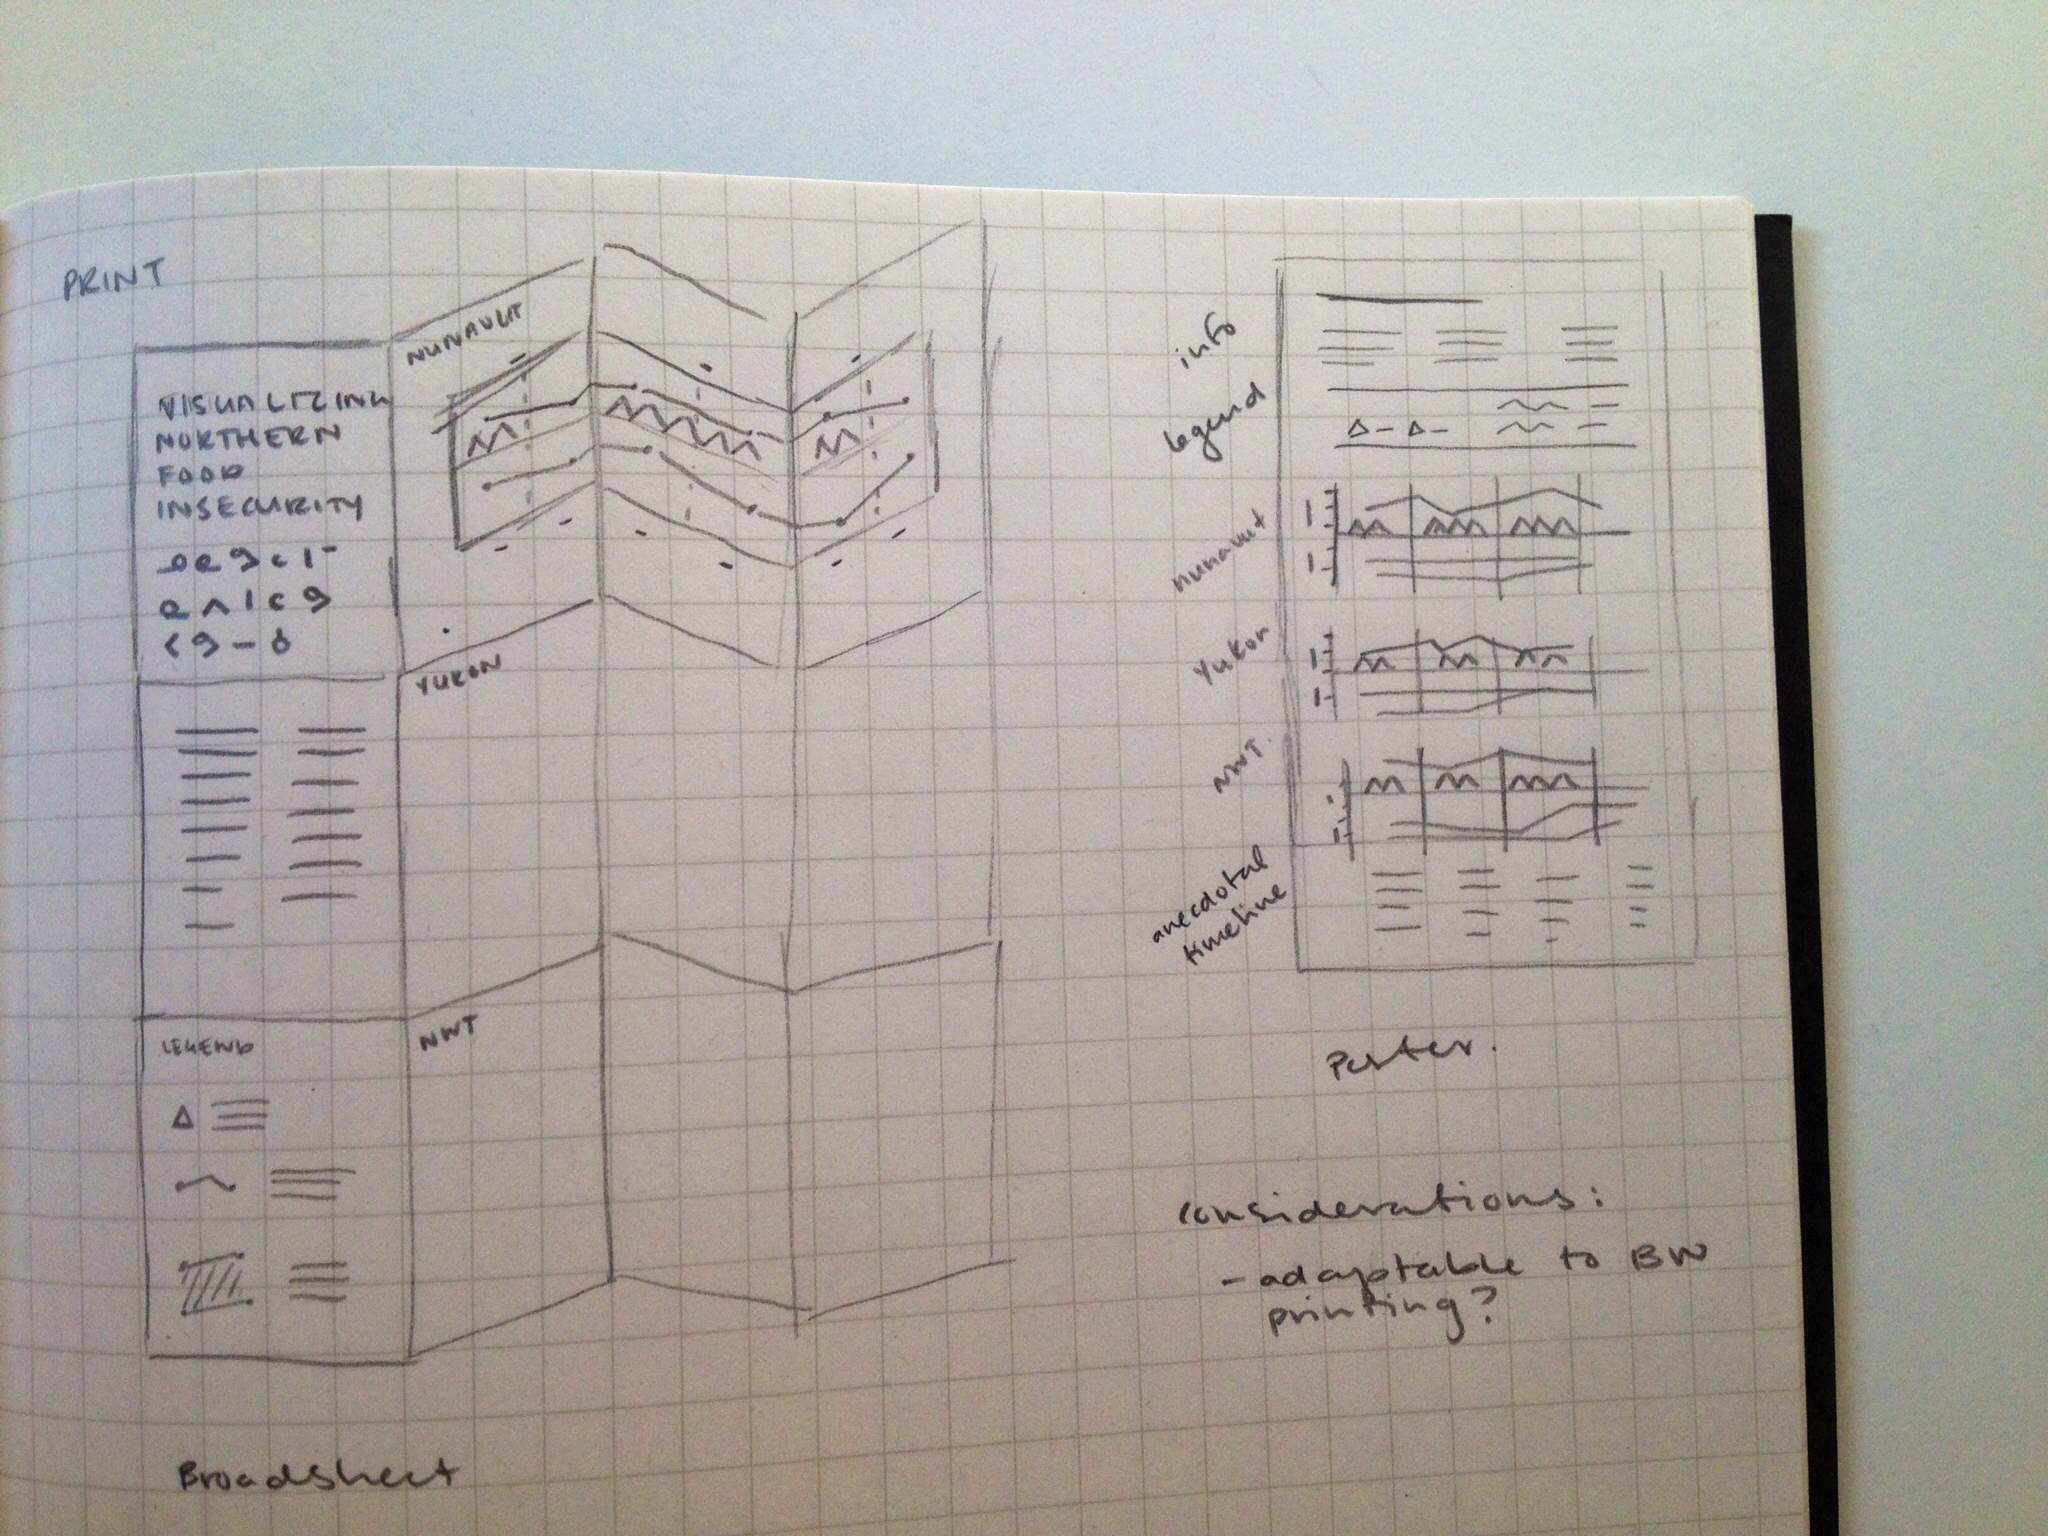 PRINT
VISUALIZING
NORTHERN
FOOD
INSECURITY
NUNAVUT
YUKON
LEGEND
NWT
Broadsheet
info
legend
nunavut
Yukon
NWT
anecdotal
timeline
Poster.
considerations:
- adaptable to BW
printing?